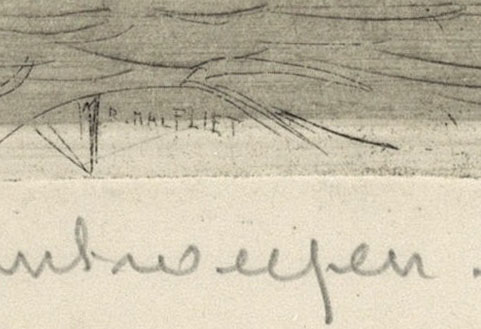 R. MALFLIET
antwerpen.